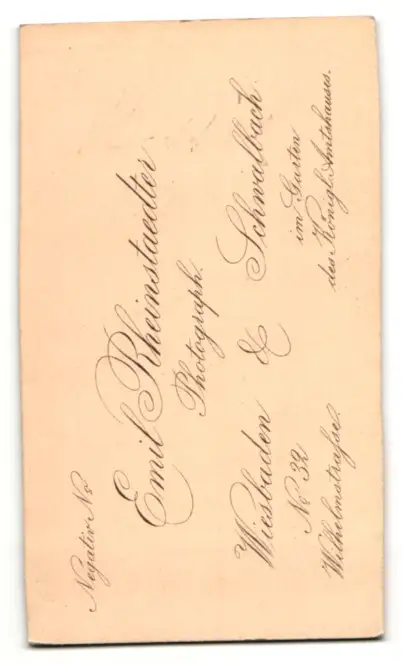 Negativ No
Emil Rheinstaedter
Photograph.
Wiesbaden & Schwalbach
No 32 im Garten
Wilhelmstrafse. des Königl. Amtshauses.